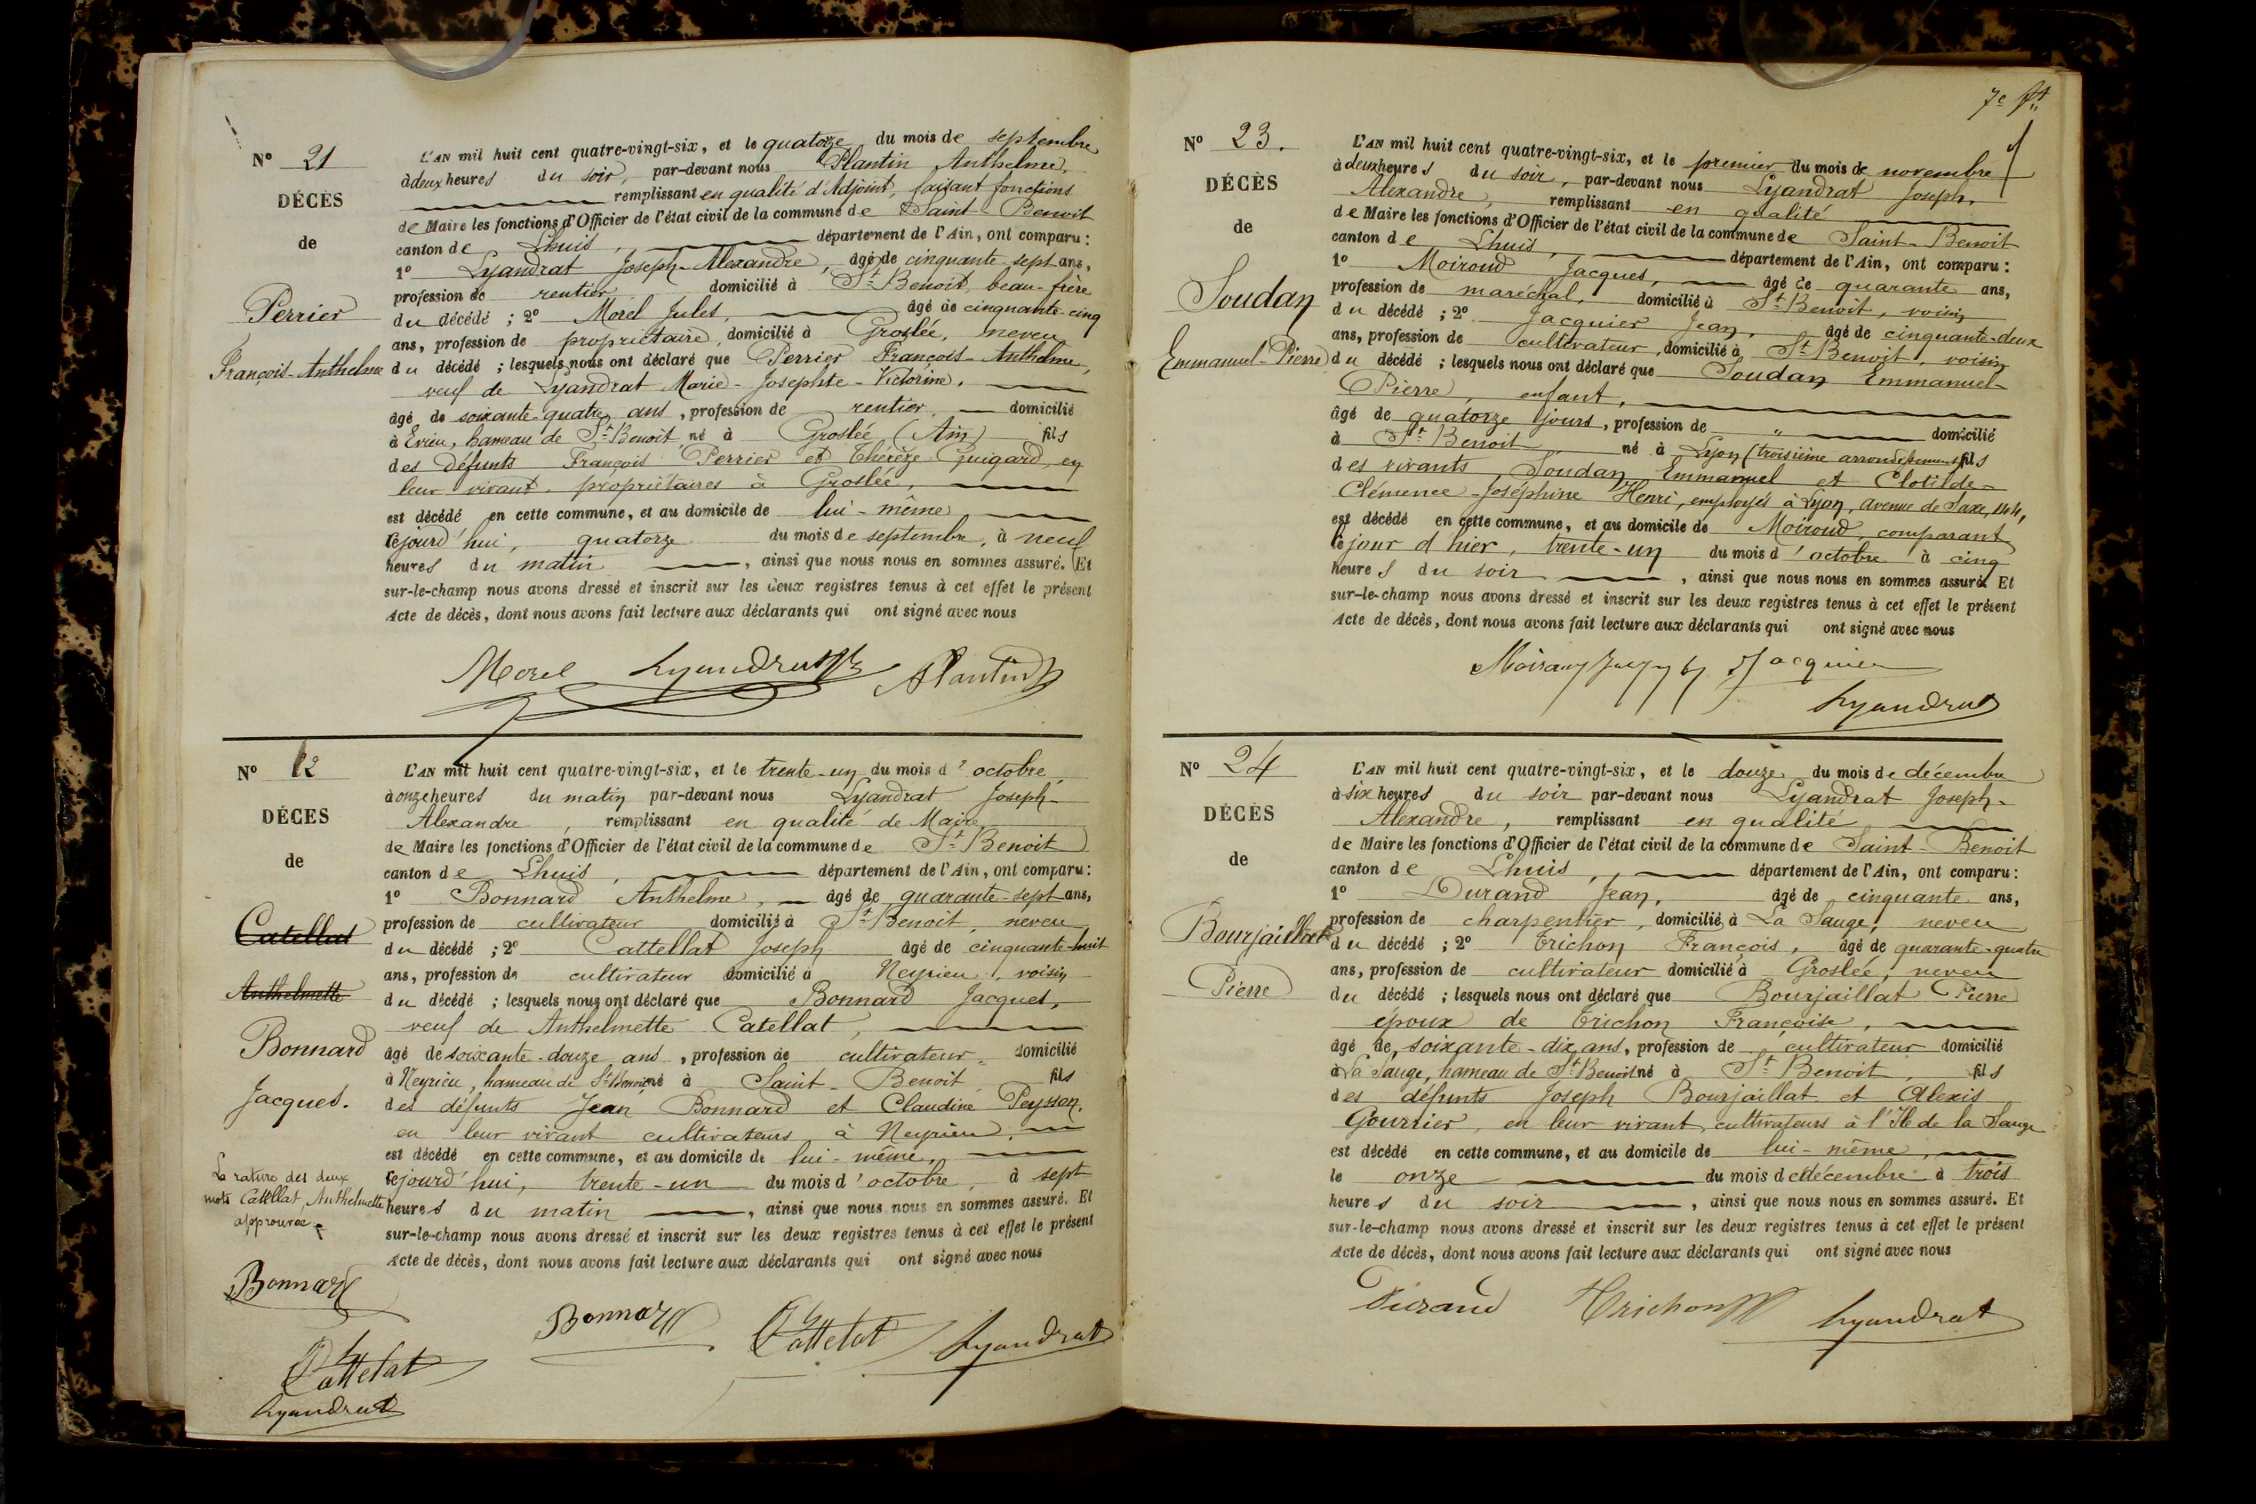 N° 21
DÉCÈS
de
Perrier
François-Anthelme
L'AN mil huit cent quatre-vingt-six, et le quatorze du mois de septembre
à deux heures du soir, par-devant nous Plantin Anthelme,
remplissant en qualité d'Adjoint, faisant fonctions
de Maire les fonctions d'Officier de l'état civil de la commune de Saint-Benoit
canton de Lhuis, département de l'Ain, ont comparu :
1° Lyandrat Joseph-Alexandre, âgé de cinquante-sept ans,
profession de rentier domicilié à St Benoit, beau-frère
du décédé ; 2° Morel Jules, âgé de cinquante-cinq
ans, profession de propriétaire, domicilié à Groslée, neveu
du décédé ; lesquels nous ont déclaré que Perrier François-Anthelme,
veuf de Lyandrat Marie-Josephte-Victorine,
âgé de soixante-quatre ans, profession de rentier, domicilié
à Evieu, hameau de St Benoit né à Groslée (Ain) fils
des défunts François Perrier et Thérèze Guigard, en
leur vivant propriétaires à Groslée,
est décédé en cette commune, et au domicile de lui-même
cejourd'hui, quatorze du mois de septembre, à neuf
heures du matin, ainsi que nous nous en sommes assuré. Et
sur-le-champ nous avons dressé et inscrit sur les deux registres tenus à cet effet le présent
Acte de décès, dont nous avons fait lecture aux déclarants qui ont signé avec nous
Morel Lyandrat APlantin
N° 22
DÉCÈS
de
Catellat
Anthelmette
Bonnard
Jacques.
La rature des deux
mots Catellat, Anthelmette
approuvée
Bonnard
Cattelat
Lyandrat
L'AN mil huit cent quatre-vingt-six, et le trente-un du mois d'octobre,
à onze heures du matin par-devant nous Lyandrat Joseph-
Alexandre, remplissant en qualité de Maire
de Maire les fonctions d'Officier de l'état civil de la commune de St Benoit
canton de Lhuis, département de l'Ain, ont comparu :
1° Bonnard Anthelme, âgé de quarante-sept ans,
profession de cultivateur domicilié à St Benoit, neveu
du décédé ; 2° Cattellat Joseph âgé de cinquante-huit
ans, profession de cultivateur domicilié à Neyrieu, voisin
du décédé ; lesquels nous ont déclaré que Bonnard Jacques,
veuf de Anthelmette Catellat,
âgé de soixante-douze ans, profession de cultivateur domicilié
à Neyrieu, hameau de St Benoit né à Saint-Benoit fils
des défunts Jean Bonnard et Claudine Peysson,
en leur vivant cultivateurs à Neyrieu,
est décédé en cette commune, et au domicile de lui-même,
cejourd'hui, trente-un du mois d'octobre, à sept
heures du matin, ainsi que nous nous en sommes assuré. Et
sur-le-champ nous avons dressé et inscrit sur les deux registres tenus à cet effet le présent
Acte de décès, dont nous avons fait lecture aux déclarants qui ont signé avec nous
Bonnard Cattelat Lyandrat
7e ft
N° 23.
DÉCÈS
de
Soudan
Emmanuel-Pierre
L'AN mil huit cent quatre-vingt-six, et le premier du mois de novembre
à deux heures du soir, par-devant nous Lyandrat Joseph-
Alexandre, remplissant en qualité
de Maire les fonctions d'Officier de l'état civil de la commune de Saint-Benoit
canton de Lhuis, département de l'Ain, ont comparu :
1° Moiroud Jacques, âgé de quarante ans,
profession de maréchal, domicilié à St Benoit, voisin
du décédé ; 2° Jacquier Jean, âgé de cinquante-deux
ans, profession de cultivateur, domicilié à St Benoit, voisin
du décédé ; lesquels nous ont déclaré que Soudan Emmanuel-
Pierre, enfant,
âgé de quatorze jours, profession de " domicilié
à St Benoit né à Lyon (troisième arrondissement) fils
des vivants Soudan Emmanuel et Clotilde-
Clémence-Joséphine Henri, employés à Lyon, avenue de Saxe, 144,
est décédé en cette commune, et au domicile de Moiroud, comparant
le jour d'hier, trente-un du mois d'octobre à cinq
heures du soir, ainsi que nous nous en sommes assuré. Et
sur-le-champ nous avons dressé et inscrit sur les deux registres tenus à cet effet le présent
Acte de décès, dont nous avons fait lecture aux déclarants qui ont signé avec nous
Jacquier
Lyandrat
N° 24
DÉCÈS
de
Bourjaillat
Pierre
L'AN mil huit cent quatre-vingt-six, et le douze du mois de décembre
à six heures du soir par-devant nous Lyandrat Joseph-
Alexandre, remplissant en qualité
de Maire les fonctions d'Officier de l'état civil de la commune de Saint-Benoit
canton de Lhuis, département de l'Ain, ont comparu :
1° Durand Jean, âgé de cinquante ans,
profession de charpentier, domicilié à La Sauge, neveu
du décédé ; 2° Trichon François, âgé de quarante-quatre
ans, profession de cultivateur domicilié à Groslée, neveu
du décédé ; lesquels nous ont déclaré que Bourjaillat Pierre
époux de Trichon Françoise,
âgé de soixante-dix ans, profession de cultivateur domicilié
à La Sauge, hameau de St Benoit né à St Benoit, fils
des défunts Joseph Bourjaillat et Alexis
Gourrier, en leur vivant, cultivateurs à l'Ile de la Sauge
est décédé en cette commune, et au domicile de lui-même,
le onze du mois de décembre à trois
heures du soir, ainsi que nous nous en sommes assuré. Et
sur-le-champ nous avons dressé et inscrit sur les deux registres tenus à cet effet le présent
Acte de décès, dont nous avons fait lecture aux déclarants qui ont signé avec nous
Durand Trichon Lyandrat